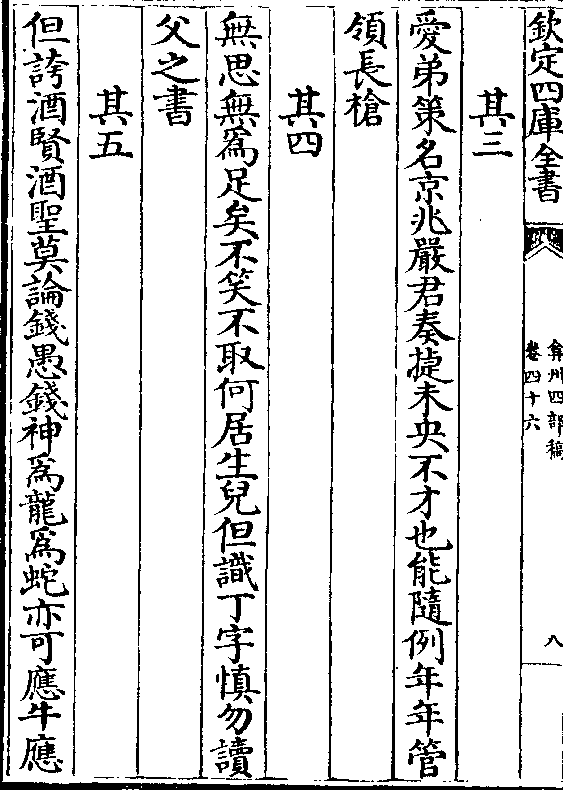 欽定四庫全書
弇州四部稿
卷四十六
八
其三
愛弟策名京兆嚴君奏捷未央不才也能隨例年年管
領長槍
其四
無思無爲足矣不笑不取何居生兒但識丁字慎勿讀
父之書
其五
但誇酒賢酒聖莫論錢愚錢神爲龍爲蛇亦可應牛應